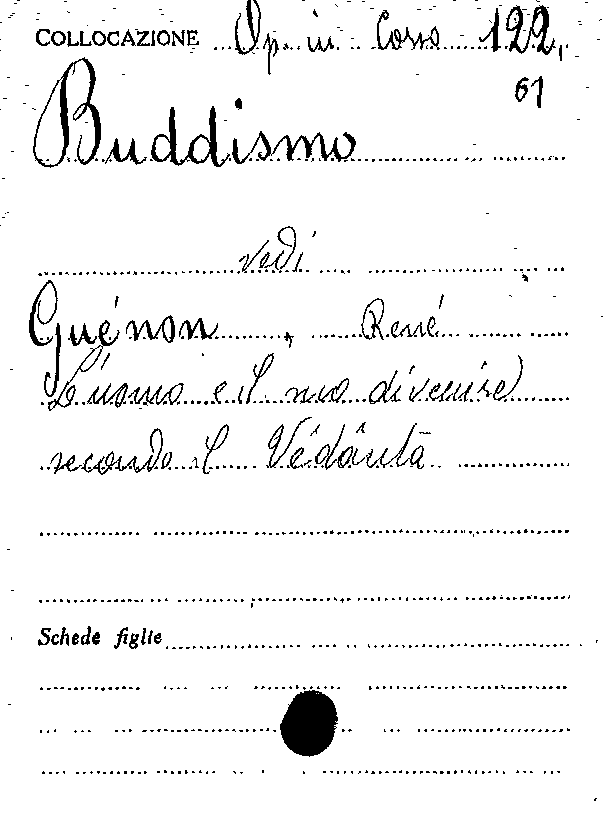 COLLOCAZIONE Op. in Corso 122,
61
Buddismo
vedi
Guénon, René
L'uomo e il suo divenire
secondo il Vêdânta
Schede figlie